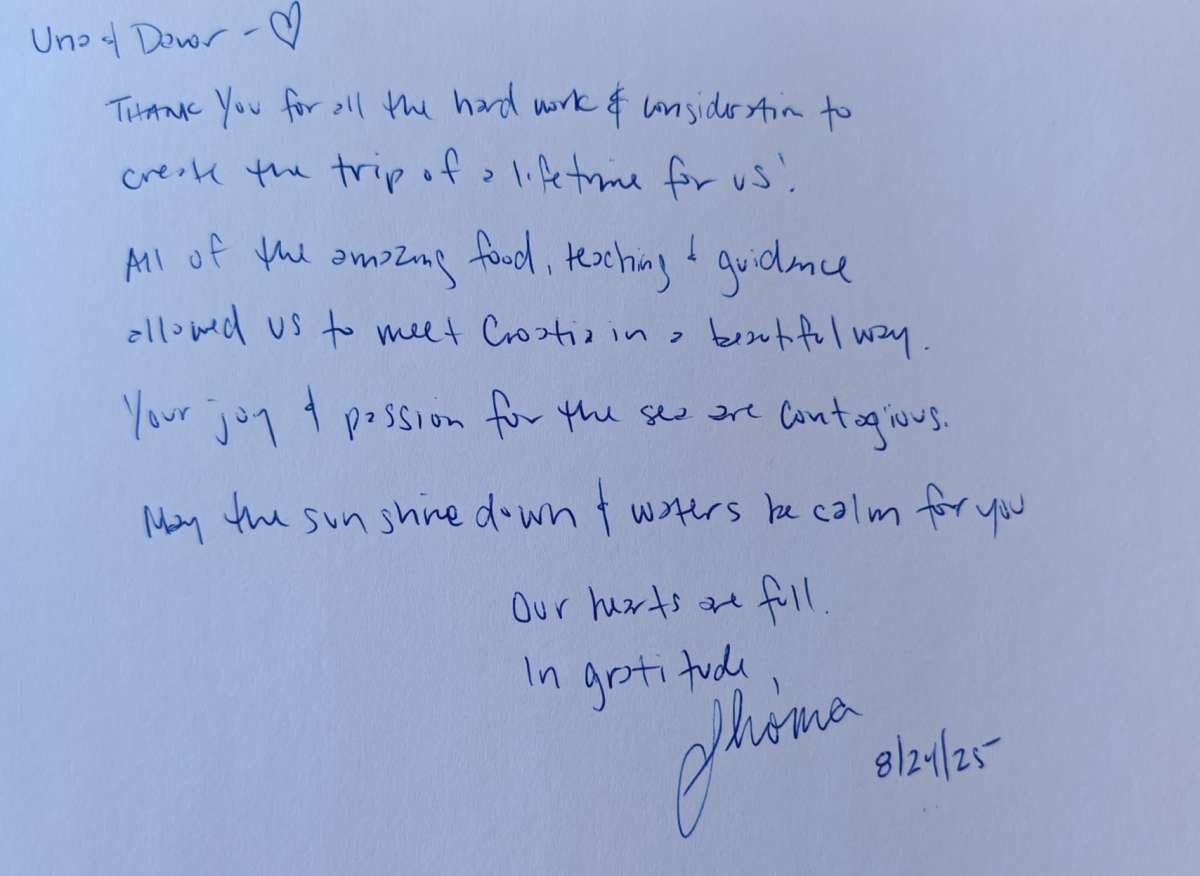 Una & Davor - ♡
THANK You for all the hard work & consideration to
create the trip of a lifetime for us!
All of the amazing food, teaching & guidance
allowed us to meet Croatia in a beautiful way.
Your joy & passion for the sea are contagious.
May the sun shine down & waters be calm for you
Our hearts are full.
In gratitude,
8/24/25